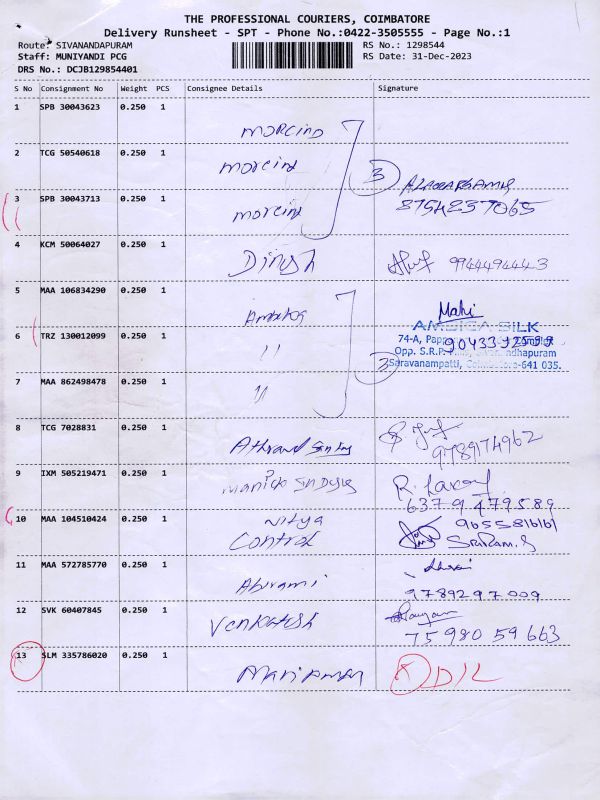 THE PROFESSIONAL COURIERS, COIMBATORE
Delivery Runsheet - SPT - Phone No.:0422-3505555 - Page No.:1
Route: SIVANANDAPURAM RS No.: 1298544
Staff: MUNIYANDI PCG RS Date: 31-Dec-2023
DRS No.: DCJB129854401
S No Consignment No Weight PCS Consignee Details Signature
1 SPB 30043623 0.250 1
morcind
2 TCG 50540618 0.250 1
morcind
3
3 SPB 30043713 0.250 1
morcind
8754237065
4 KCM 50064027 0.250 1
Dinesh 9944494443
5 MAA 106834290 0.250 1
Mahi
AMBICA SILK
6 TRZ 130012099 0.250 1
74-A,
" Opp. S.R.P.
3 Saravanampatti, Coimbatore-641 035.
7 MAA 862498478 0.250 1
"
8 TCG 7028831 0.250 1
978974962
9 IXM 505219471 0.250 1
R.
6379479589
10 MAA 104510424 0.250 1
Nitya 9655816161
Control SRiRam.S
11 MAA 572785770 0.250 1
Abirami 9789297009
12 SVK 60407845 0.250 1
Venkatesh 75980 59663
13 SLM 335786020 0.250 1
D/L